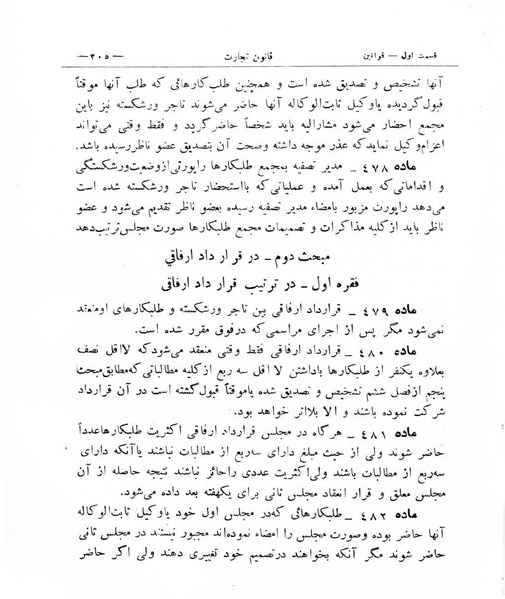 قسمت اول — قوانین قانون تجارت —۳۰۵—
آنها تشخیص و تصدیق شده است و همچنین طلبکارهائی که طلب آنها موقتاً
قبول گردیده یا وکیل ثابت‌الوکاله آنها حاضر می‌شوند تاجر ورشکسته نیز باین
مجمع احضار می‌شود مشارالیه باید شخصاً حاضر گردد و فقط وقتی می‌تواند
اعزام وکیل نماید که عذر موجه داشته وصحت آن بتصدیق عضو ناظر رسیده باشد.
ماده ۴۷۸ ـ مدیر تصفیه بمجمع طلبکارها راپورتی از وضعیت ورشکستگی
و اقداماتی که بعمل آمده و عملیاتی که با استحضار تاجر ورشکسته شده است
می‌دهد راپورت مزبور بامضاء مدیر تصفیه رسیده بعضو ناظر تقدیم می‌شود و عضو
ناظر باید از کلیه مذاکرات و تصمیمات مجمع طلبکارها صورت مجلس ترتیب دهد
مبحث دوم ـ در قرار داد ارفاقي
فقره اول ـ در ترتیب قرار داد ارفاقی
ماده ۴۷۹ ـ قرارداد ارفاقی بین تاجر ورشکسته و طلبکارهای او منعقد
نمی‌شود مگر پس از اجرای مراسمی که در فوق مقرر شده است.
ماده ۴۸۰ ـ قرارداد ارفاقی فقط وقتی منعقد می‌شود که لااقل نصف
بعلاوه یکنفر از طلبکارها باداشتن لا اقل سه ربع از کلیه مطالباتی که مطابق مبحث
پنجم از فصل ششم تشخیص و تصدیق شده یا موقتاً قبول گشته است در آن قرارداد
شرکت نموده باشند و الا بلااثر خواهد بود.
ماده ۴۸۱ ـ هرگاه در مجلس قرارداد ارفاقی اکثریت طلبکارها عدداً
حاضر شوند ولی از حیث مبلغ دارای سه‌ربع از مطالبات نباشند یا آنکه دارای
سه‌ربع از مطالبات باشند ولی اکثریت عددی را حائز نباشند نتیجه حاصله از آن
مجلس معلق و قرار انعقاد مجلس ثانی برای یکهفته بعد داده می‌شود.
ماده ۴۸۲ ـ طلبکارهائی که در مجلس اول خود یا وکیل ثابت‌الوکاله
آنها حاضر بوده وصورت مجلس را امضاء نموده‌اند مجبور نیستند در مجلس ثانی
حاضر شوند مگر آنکه بخواهند درتصمیم خود تغییری دهند ولی اگر حاضر